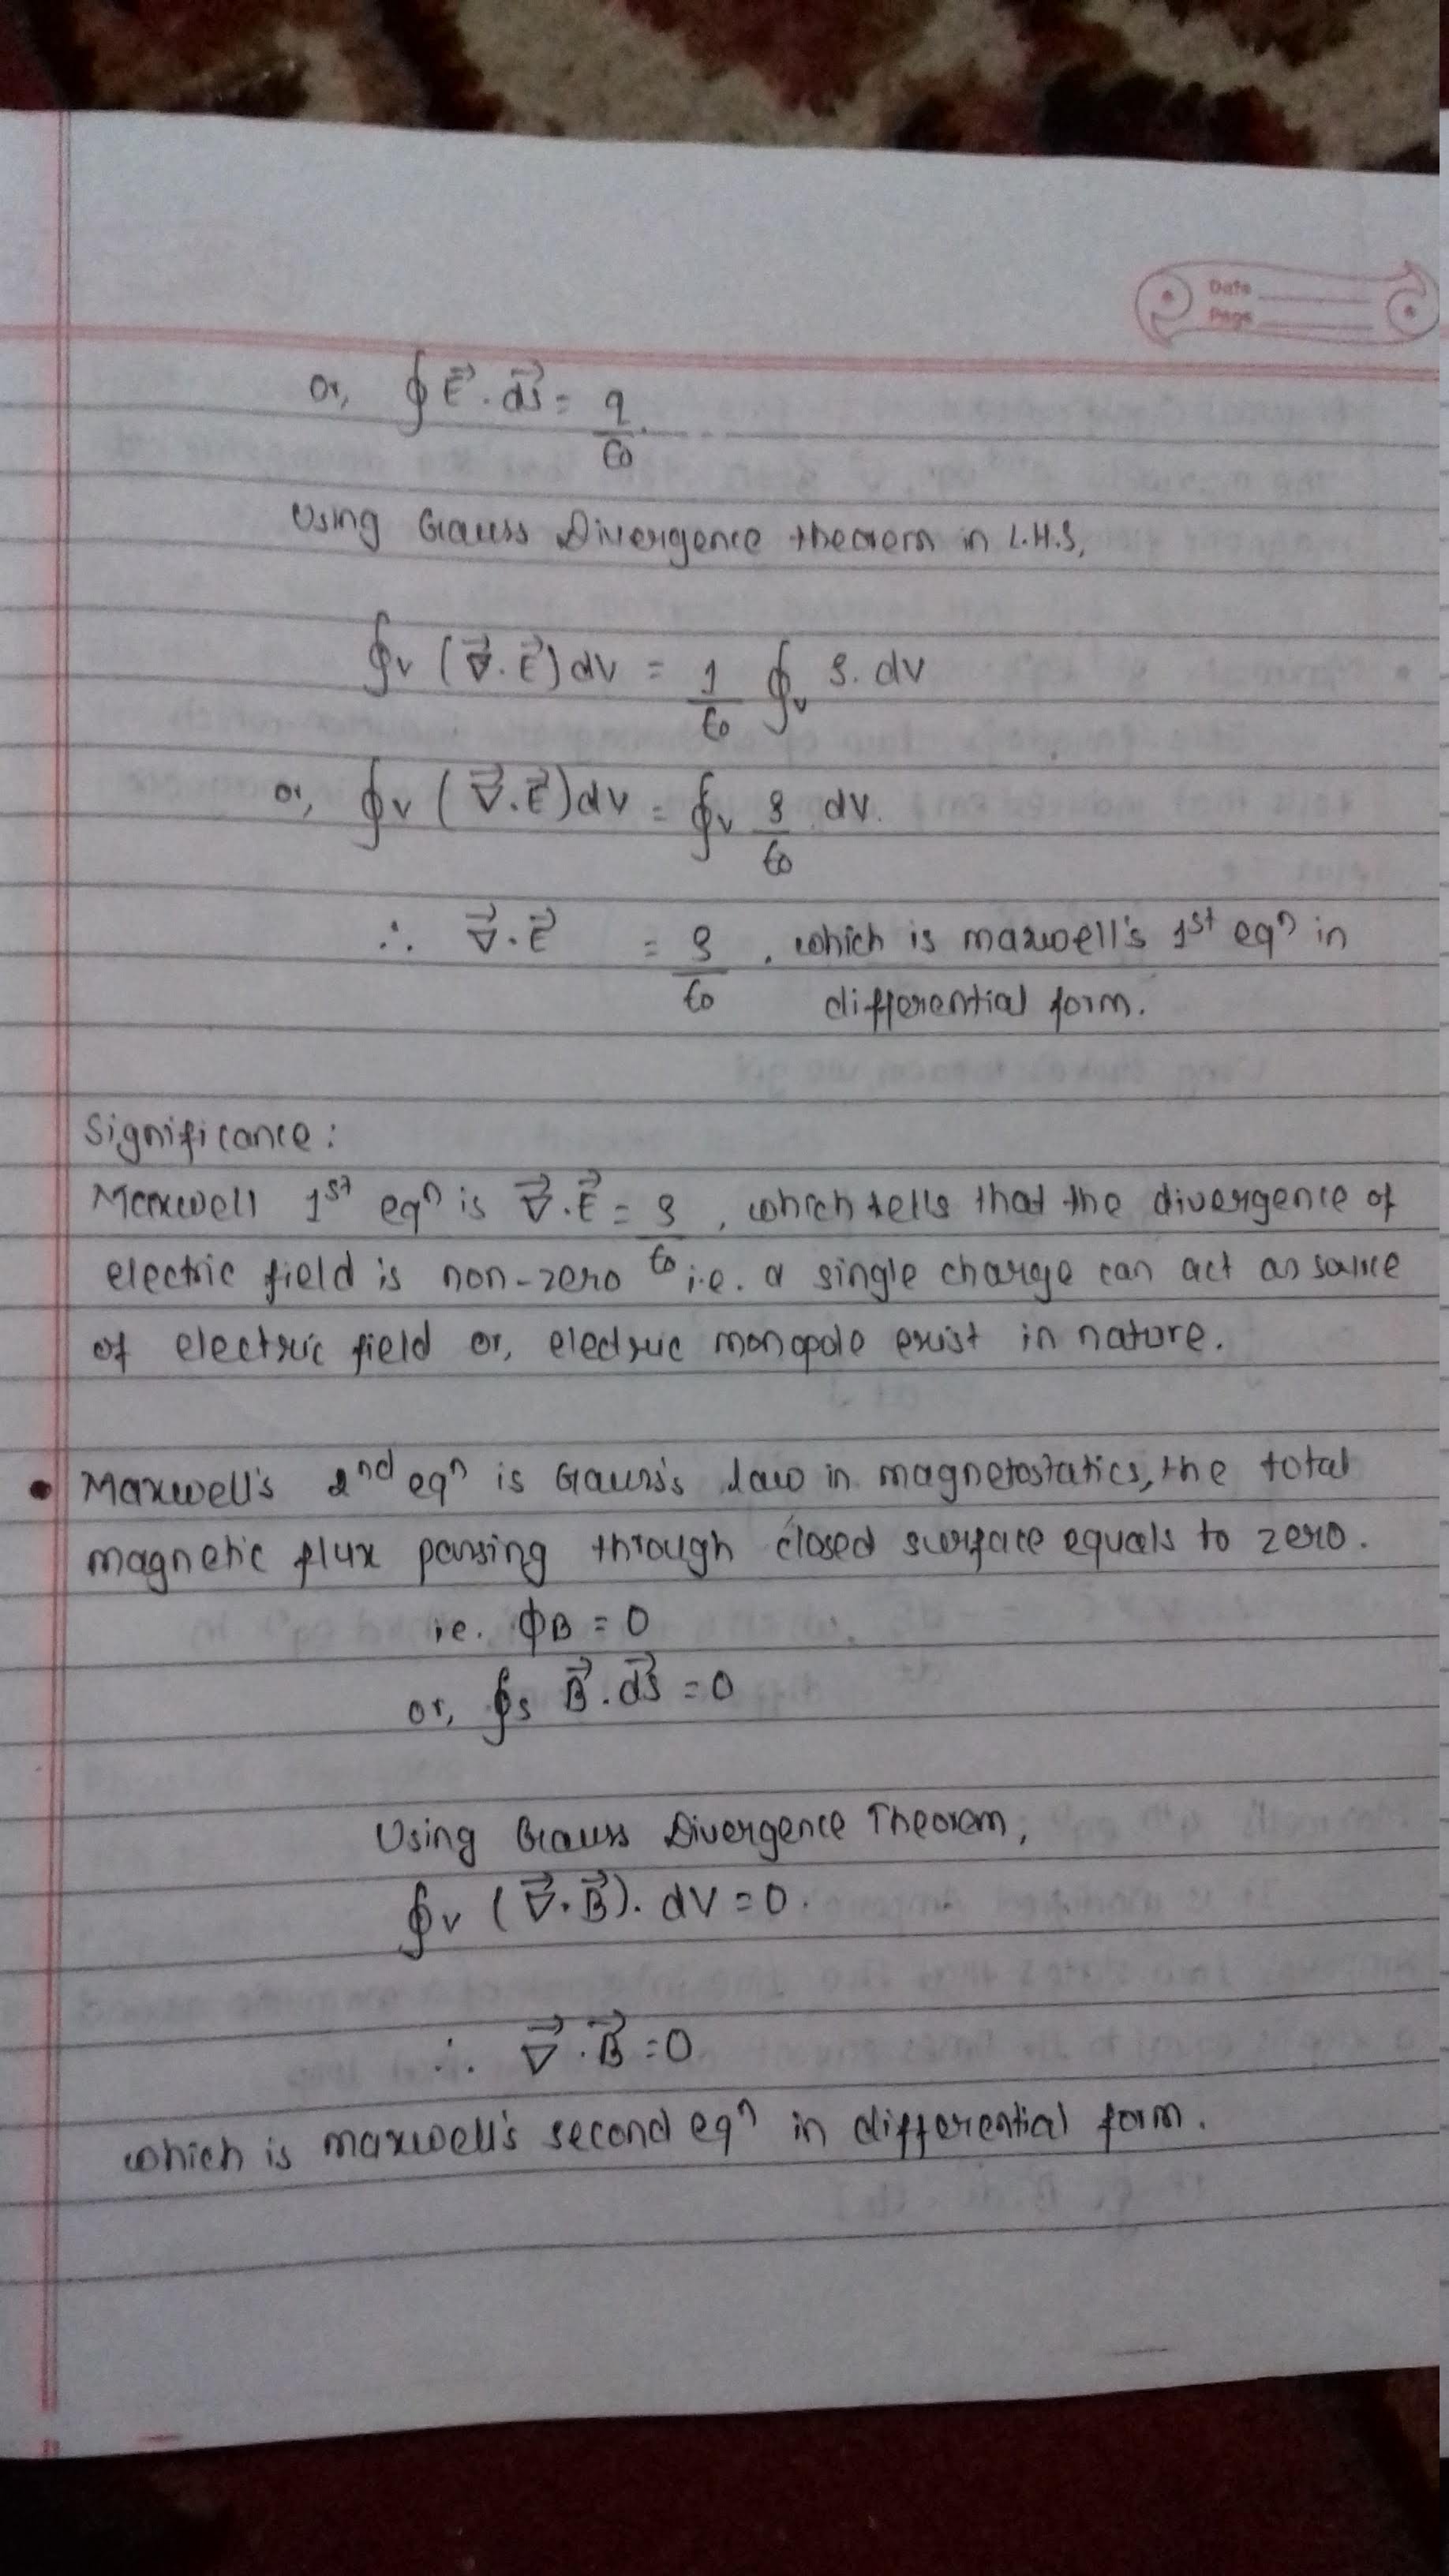 Date
Page
or, ∮ E⃗ . ds⃗ = q/ε0.
Using Gauss Divergence theorem in L.H.S,
∮v (∇⃗.E⃗) dv = 1/ε0 ∮v ρ. dv
or, ∮v (∇⃗.E⃗) dv = ∮v ρ/ε0 dv.
∴ ∇⃗.E⃗ = ρ/ε0 , which is maxwell's 1st eqn in
differential form.
Significance:
Maxwell 1st eqn is ∇⃗.E⃗ = ρ/ε0 , which tells that the divergence of
electric field is non-zero i.e. a single charge can act as source
of electric field or, electric monopole exist in nature.
• Maxwell's 2nd eqn is Gauss's law in magnetostatics, the total
magnetic flux passing through closed surface equals to zero.
ie. ϕB = 0
or, ∮s B⃗ . ds⃗ = 0
Using Gauss Divergence Theorem,
∮v (∇⃗.B⃗). dV = 0.
∴ ∇⃗.B⃗ = 0
which is maxwell's second eqn in differential form.